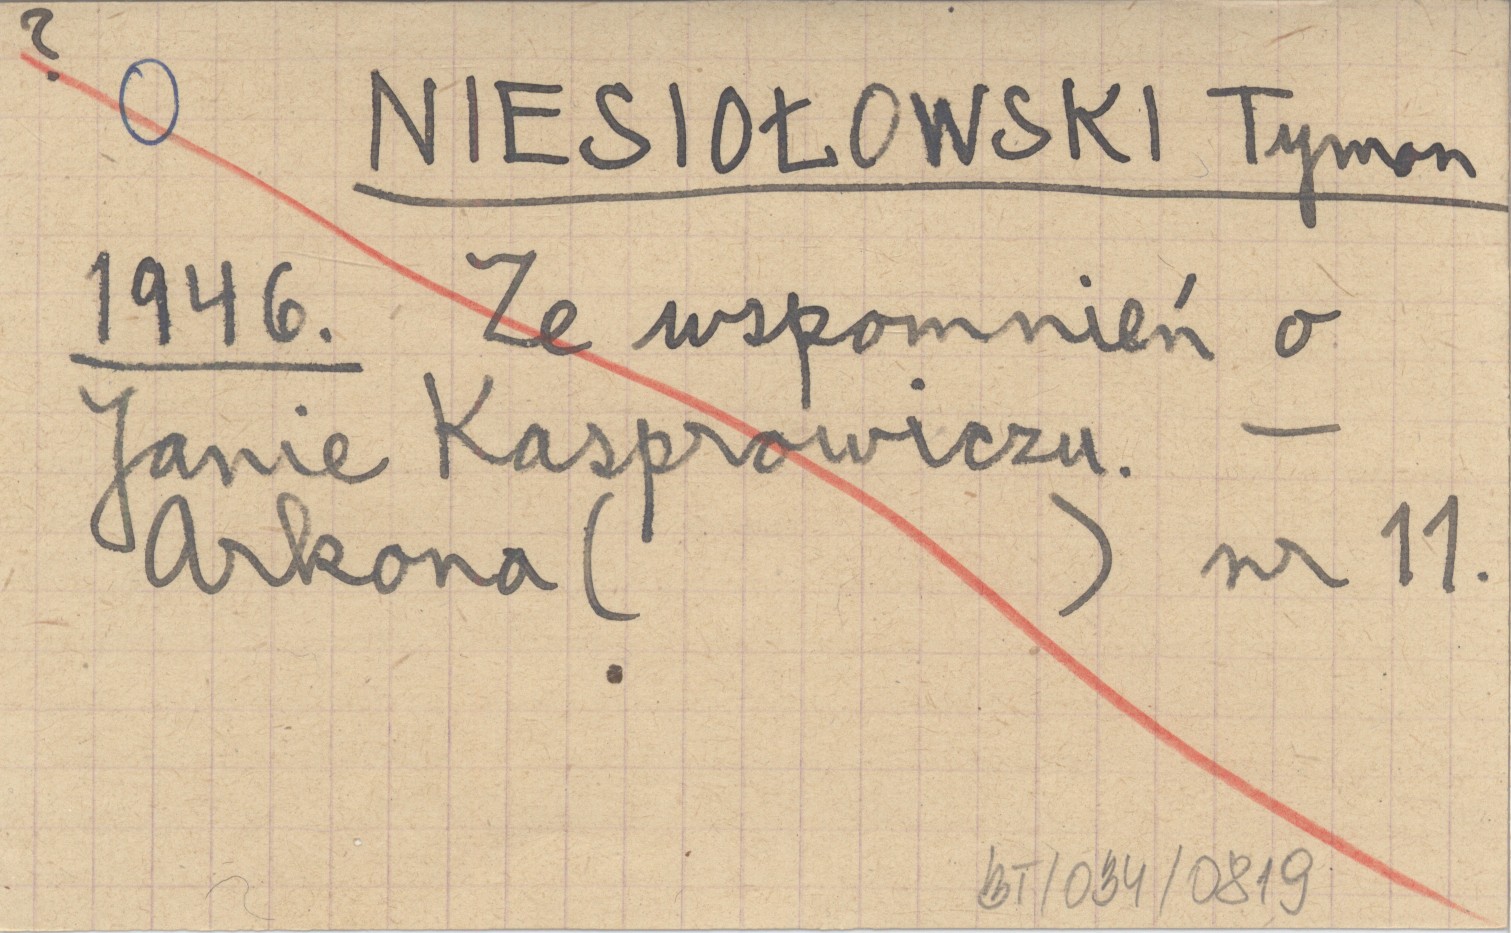 ?
NIESIOŁOWSKI Tymon
1946. Ze wspomnień o
Janie Kasprowiczu. —
Arkona ( ) nr 11.
BT/034/0819